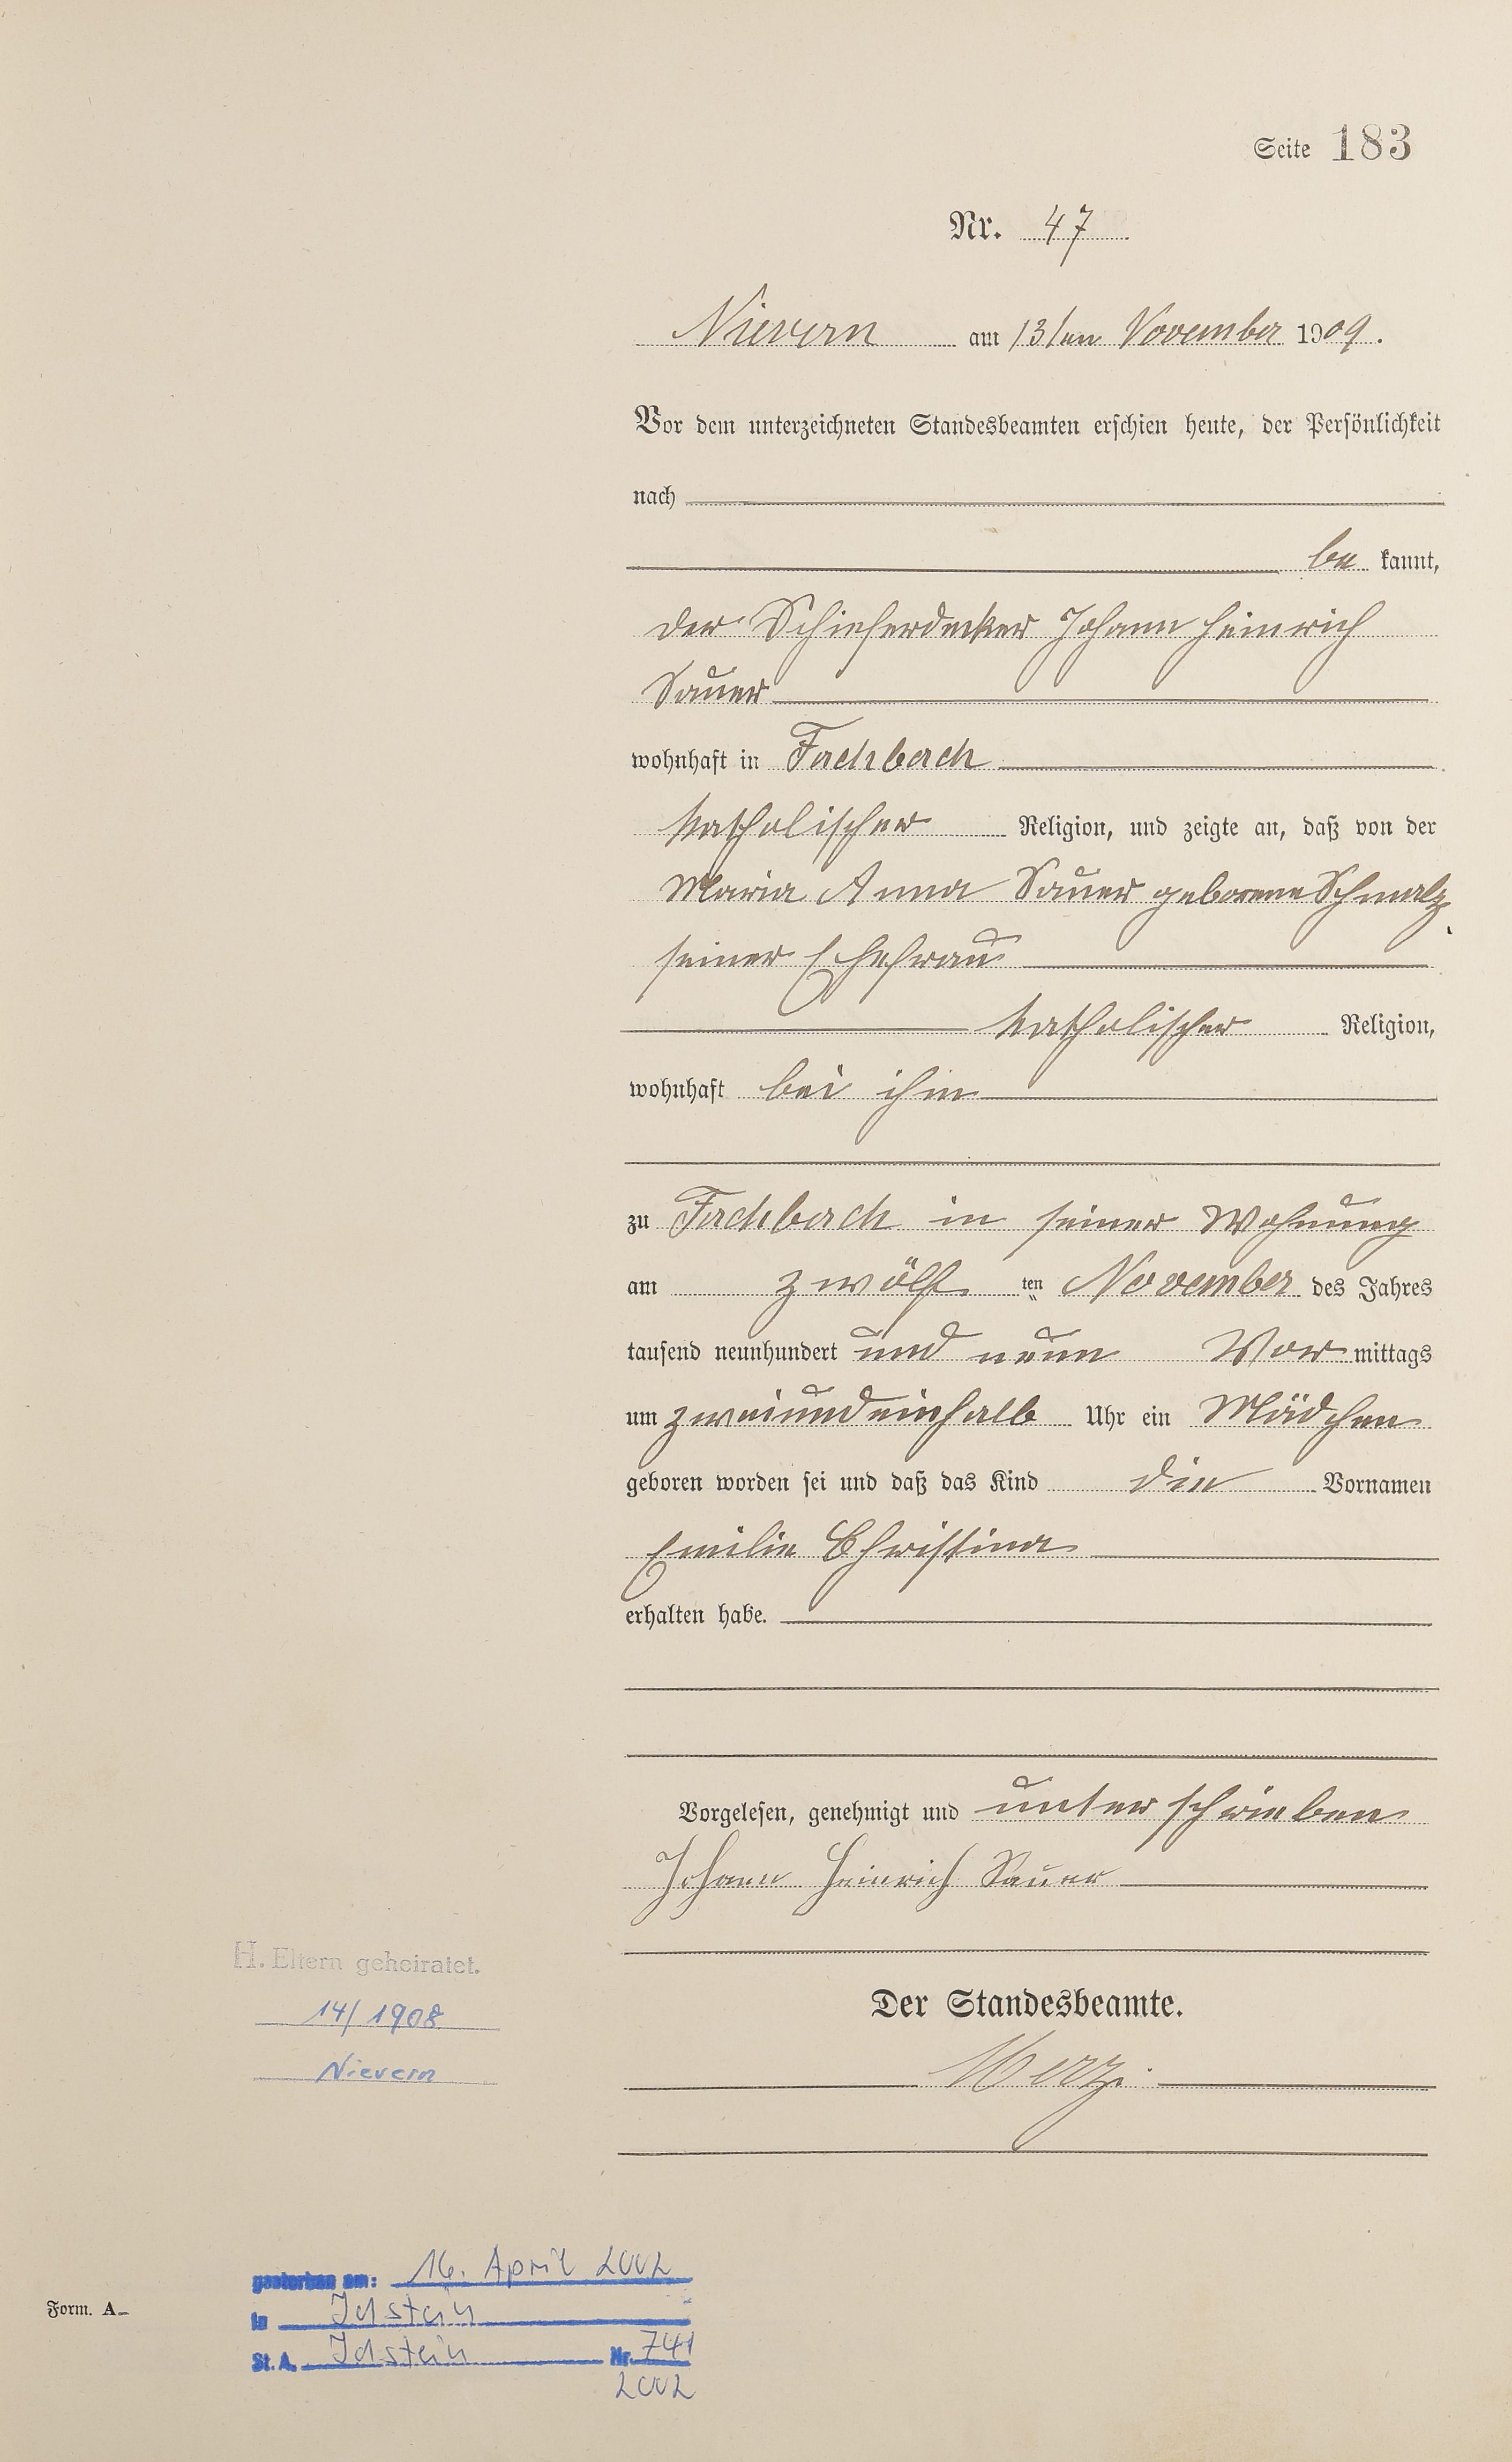 Seite 183
Nr. 47
Nievern am 13ten November 1909.
Vor dem unterzeichneten Standesbeamten erschien heute, der Persönlichkeit
nach
be kannt,
der Schieferdecker Johann Heinrich
Sauer
wohnhaft in Fachbach
katholischer Religion, und zeigte an, daß von der
Maria Anna Sauer geborene Schmalz,
seiner Ehefrau
katholischer Religion,
wohnhaft bei ihm
zu Fachbach in seiner Wohnung
am zwölf ten November des Jahres
tausend neunhundert und neun Vor mittags
um zweiundeinhalb Uhr ein Mädchen
geboren worden sei und daß das Kind die Vornamen
Emilie Christina
erhalten habe.
Vorgelesen, genehmigt und unterschrieben
Johann Heinrich Sauer
H. Eltern geheiratet.
14/1908
Nievern
Der Standesbeamte.
gestorben am: 16. April 2002
in Idstein
St. A. Idstein Nr. 741
2002
Form. A